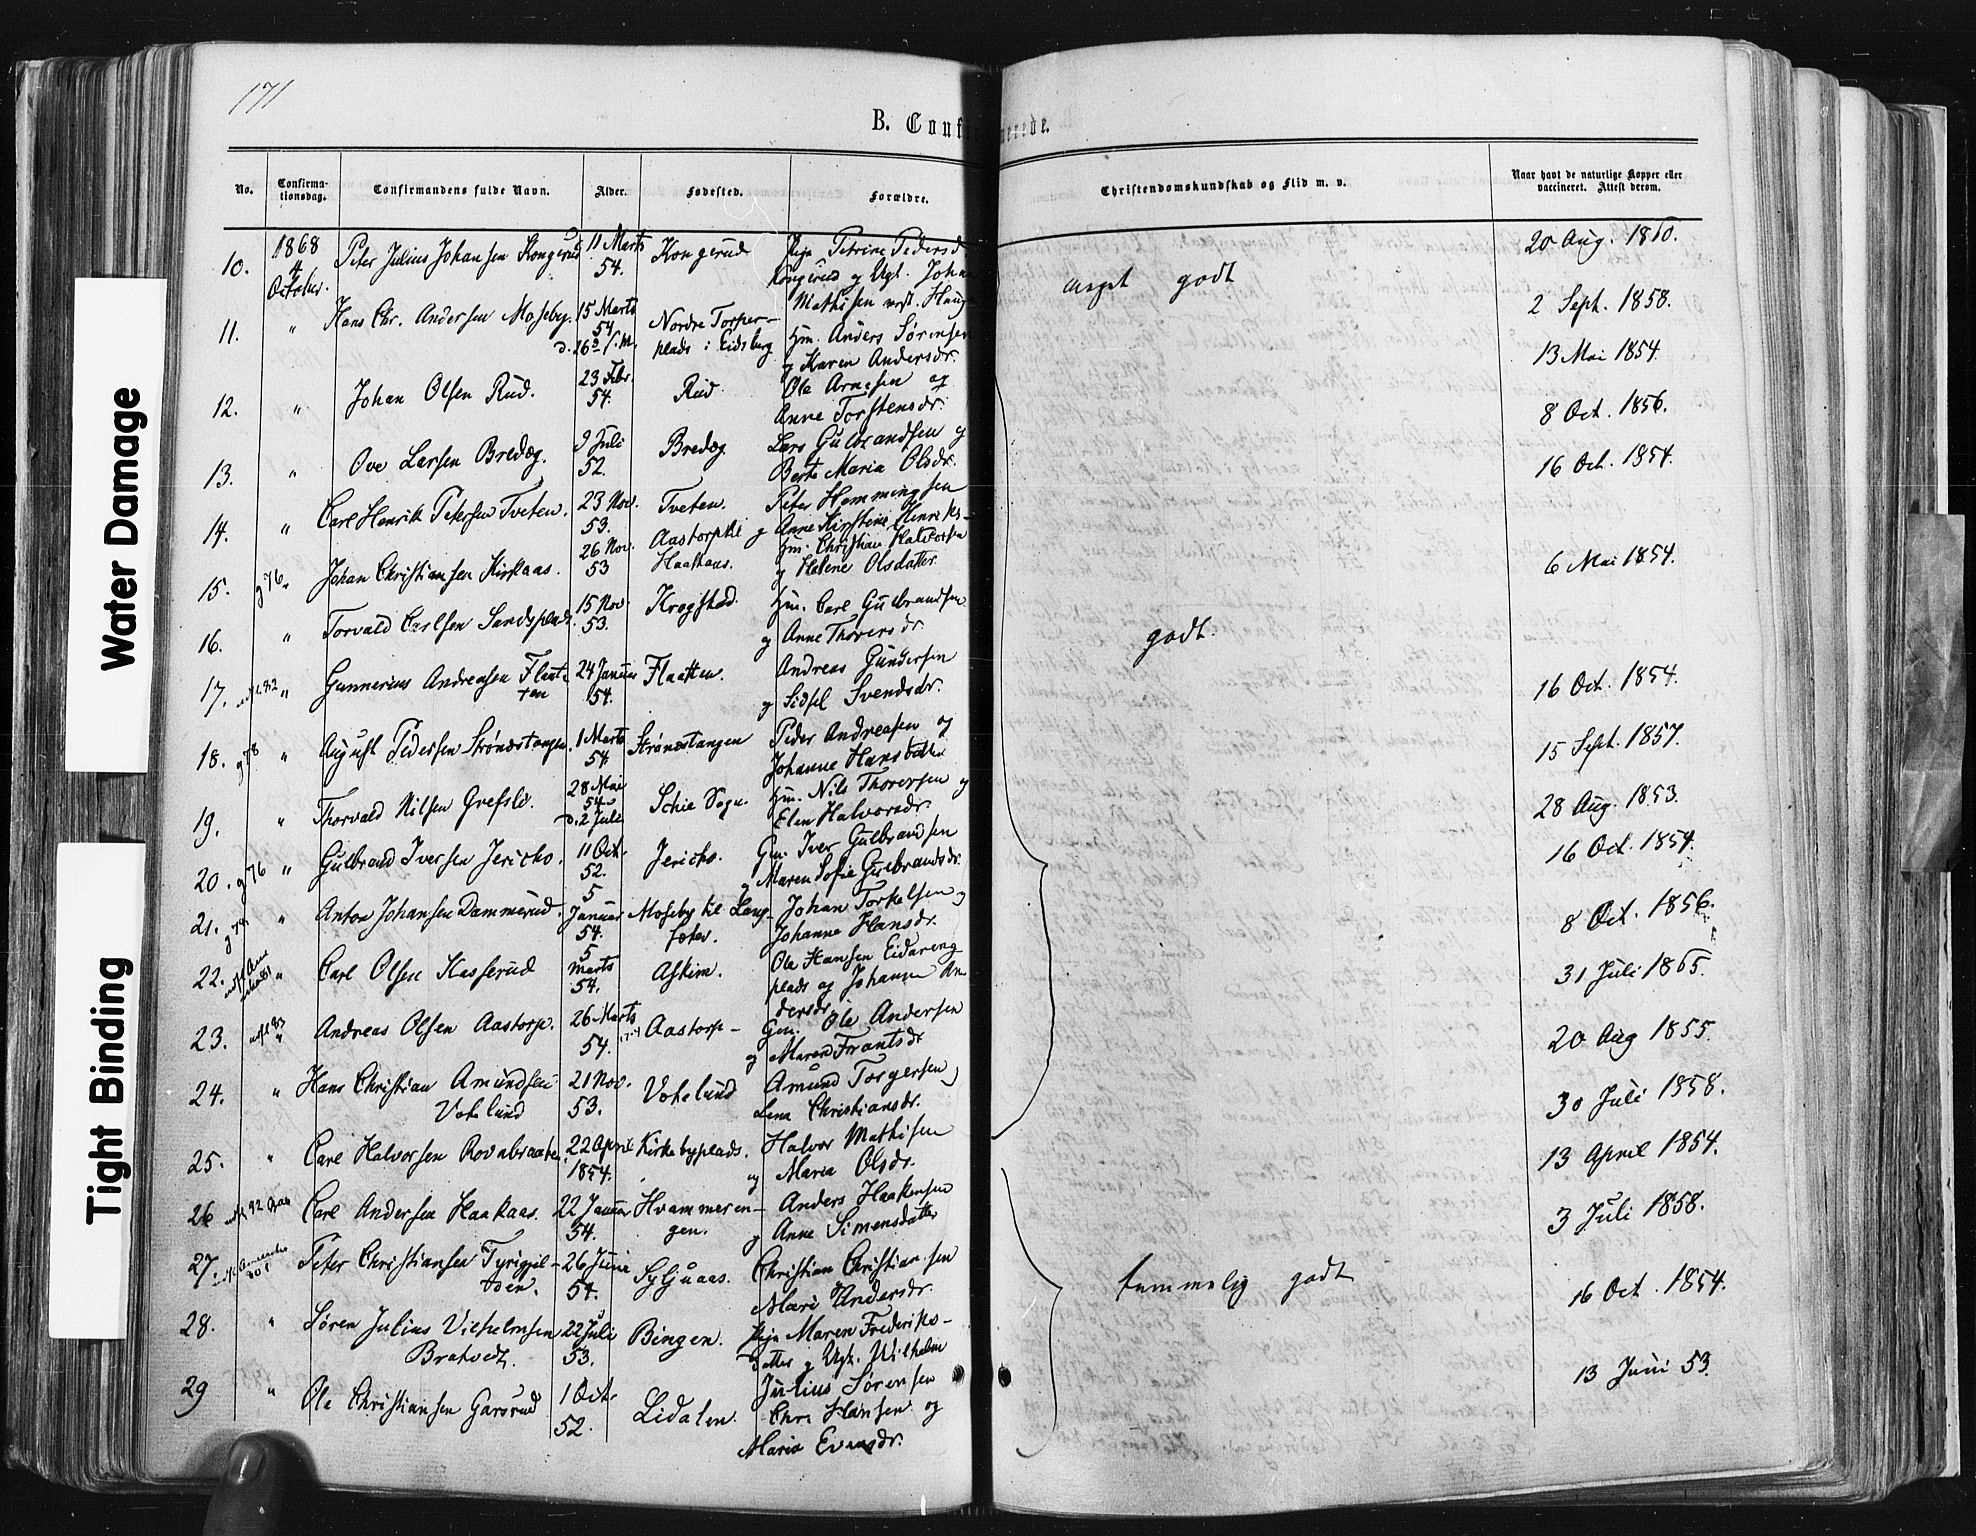 171
B. Confirmerede.
No.
Confirma-
tionsdag.
Confirmandens fulde Navn.
Alder.
Fødested.
Forældre.
Christendomskundskab og Flid m. v.
Naar havt de naturlige Kopper eller
vaccineret. Attest derom.
Water Damage
Tight Binding
10. 1868 4 October. Peter Julius Johansen Kongerud 11 Marts 54. Kongerud Pige Petrine Pedersd.
Kongerud og Ugk. Johan
Mathisen Haugen
meget godt
20 Aug. 1860.
11. " Hans Chr. Andersen Moseby. 15 Marts 54 Nordre Torper-
plads i Eidsberg
Hm. Anders Sørensen
og Karen Andersdr.
2 Sept. 1858.
12. " Johan Olsen Rud. 23 Febr. 54. Rud Ole Arnesen og
Anne Torstensdr.
13 Mai 1854.
13. " Ove Larsen Bredeg. 9 Juli 52. Bredeg Lars Gulbrandsen og
Berte Maria Olsdr.
8 Oct. 1856.
14. " Carl Henrik Petersen Tveten. 23 Nov. 53. Tveten. Peter Hemmingsen
og Anne Kirstine Henriks-
16 Oct. 1854.
15. g 76 " Johan Christiansen Kirkaas. 26 Nov. 53 Aastorp til
Haakaas.
Hm. Christian Halvorsen
og Helene Olsdatter
6 Mai 1854.
16. " Torvald Carlsen Sandsplads. 15 Nov. 53. Krogstad. Hm. Carl Gulbrandsen
og Anne Thoresdr.
godt.
17. 82 " Gunnerius Andreasen Flaat-
ten
24 Januar 54. Flaatten. Andreas Gundersen
og Sidsel Svendsdr.
16 Oct. 1854.
18. g 78 " August Pedersen Strøndstangen. 1 Marts 54 Strøndstangen Peder Andreasen og
Johanne Hansdatter
15 Sept. 1857.
19. " Thorvald Nilsen Grefslv. 28 Mai 54
d. 2 Juli
Schie Sogn. Hm. Nils Thoresen og
Elen Halvorsdr.
28 Aug. 1853.
20. g 76 " Gulbrand Iversen Jericho. 11 Oct. 52. Jericho. Gm. Iver Gulbrandsen
og Maren Sofie Gulbrandsdr.
16 Oct. 1854.
21. " Anton Johansen Dammerud 5 Januar 54. Moseby til Lang-
seter.
Johan Torkelsen og
Johanne Hansdr.
8 Oct. 1856.
22. " Carl Olsen Kasserud 5 Marts 54. Askim. Ole Hansen Eidareng
plads og Johanne An-
dersdr.
31 Juli 1865.
23. 83 " Andreas Olsen Aastorp. 26 Marts 54. Aastorp- Gm. Ole Andersen
og Maren Frantsdr
20 Aug 1855.
24. " Hans Christian Amundsen
Votelund
21 Nov. 53. Votelund Amund Torgersen og
Lena Christiansdr.
30 Juli 1858.
25. " Carl Halvorsen Rovabraaten. 22 April 1854. Kirkebyplads. Halvor Mathisen
og Maria Olsdr.
13 April 1854.
26 92 Carl Andersen Haakaas. 22 Januar 54. Hvammeren-
gen.
Anders Haakensen
og Anne Simensdatter
3 Juli 1858.
27. Peter Christiansen Tyrigjil-
den.
26 Juni 54. Christian Christiansen
Mari Andersdr.
temmelig godt
16 Oct. 1854.
28. " Søren Julius Vilhelmsen
Bratvedt.
22 Juli 53. Bingen. Pige Maren Frederiks-
datter og Ugk. Wilhelm
Julius Sørensen
13 Juni 53.
29 " Ole Christiansen Garsrud 1 Oct. 52. Lidalen. Chr. Hansen og
Maria Evensdr.